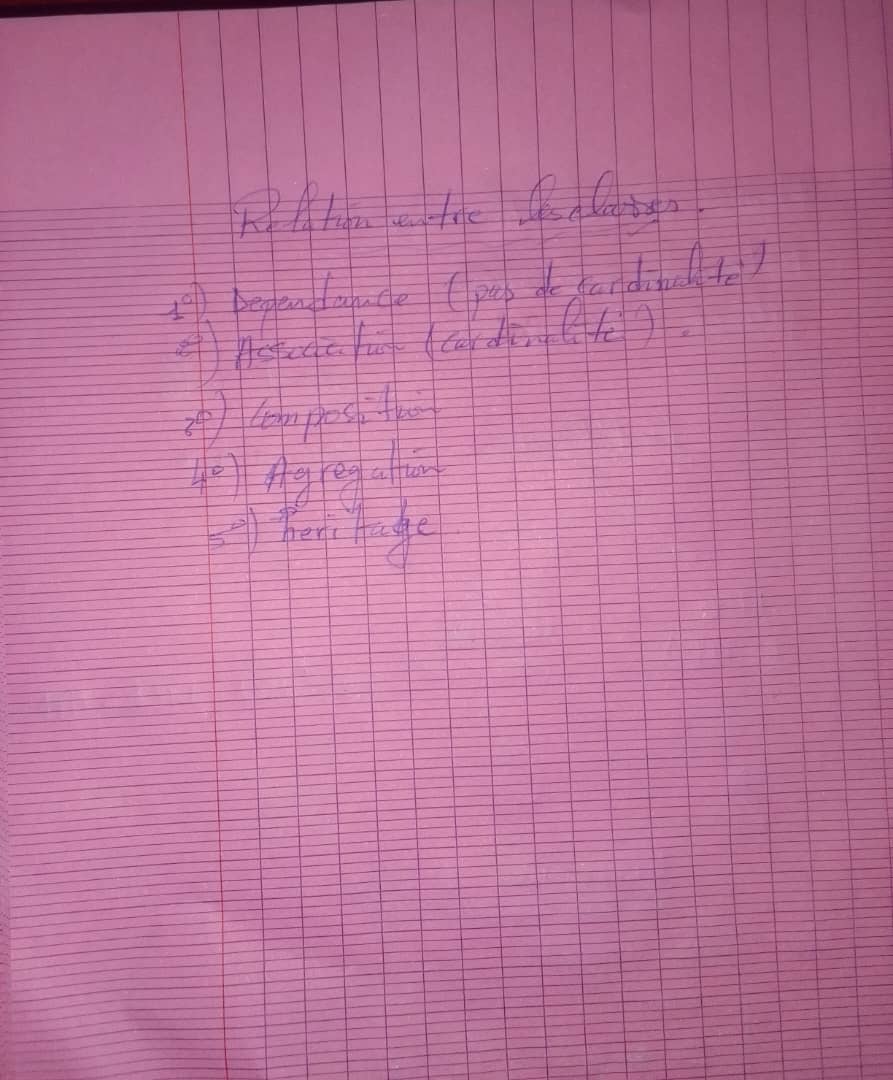 Relation entre les classes.
1°) Dependance (pas de cardinalité)
2°) Association (cardinalité).
3°) Composition
4°) Agregation
5°) heritage.